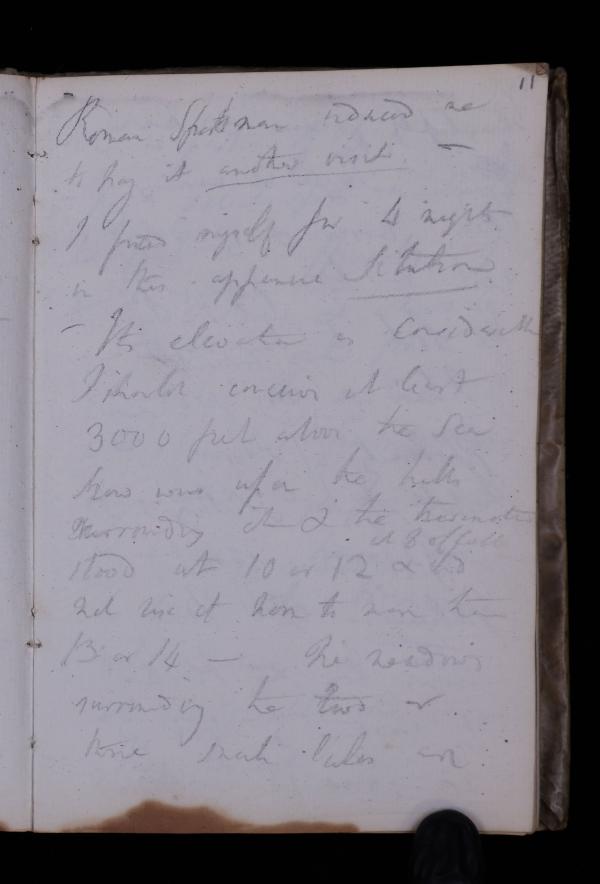 11
Roman Sportsman induced me
to pay it another visit —
I fixed myself for 4 nights
in this Situation.
- Its elevation is considerable
I should conceive at least
3000 feet above the Sea
Snow was upon the hills
surrounding it & the thermometer
at 8 o'clock
stood at 10 or 12 & did
not rise at noon to more than
13 or 14 — The meadows
surrounding the two or
three small lakes are